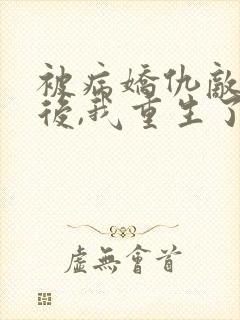 被病嬌仇敵
後,我重生了
虛無會首